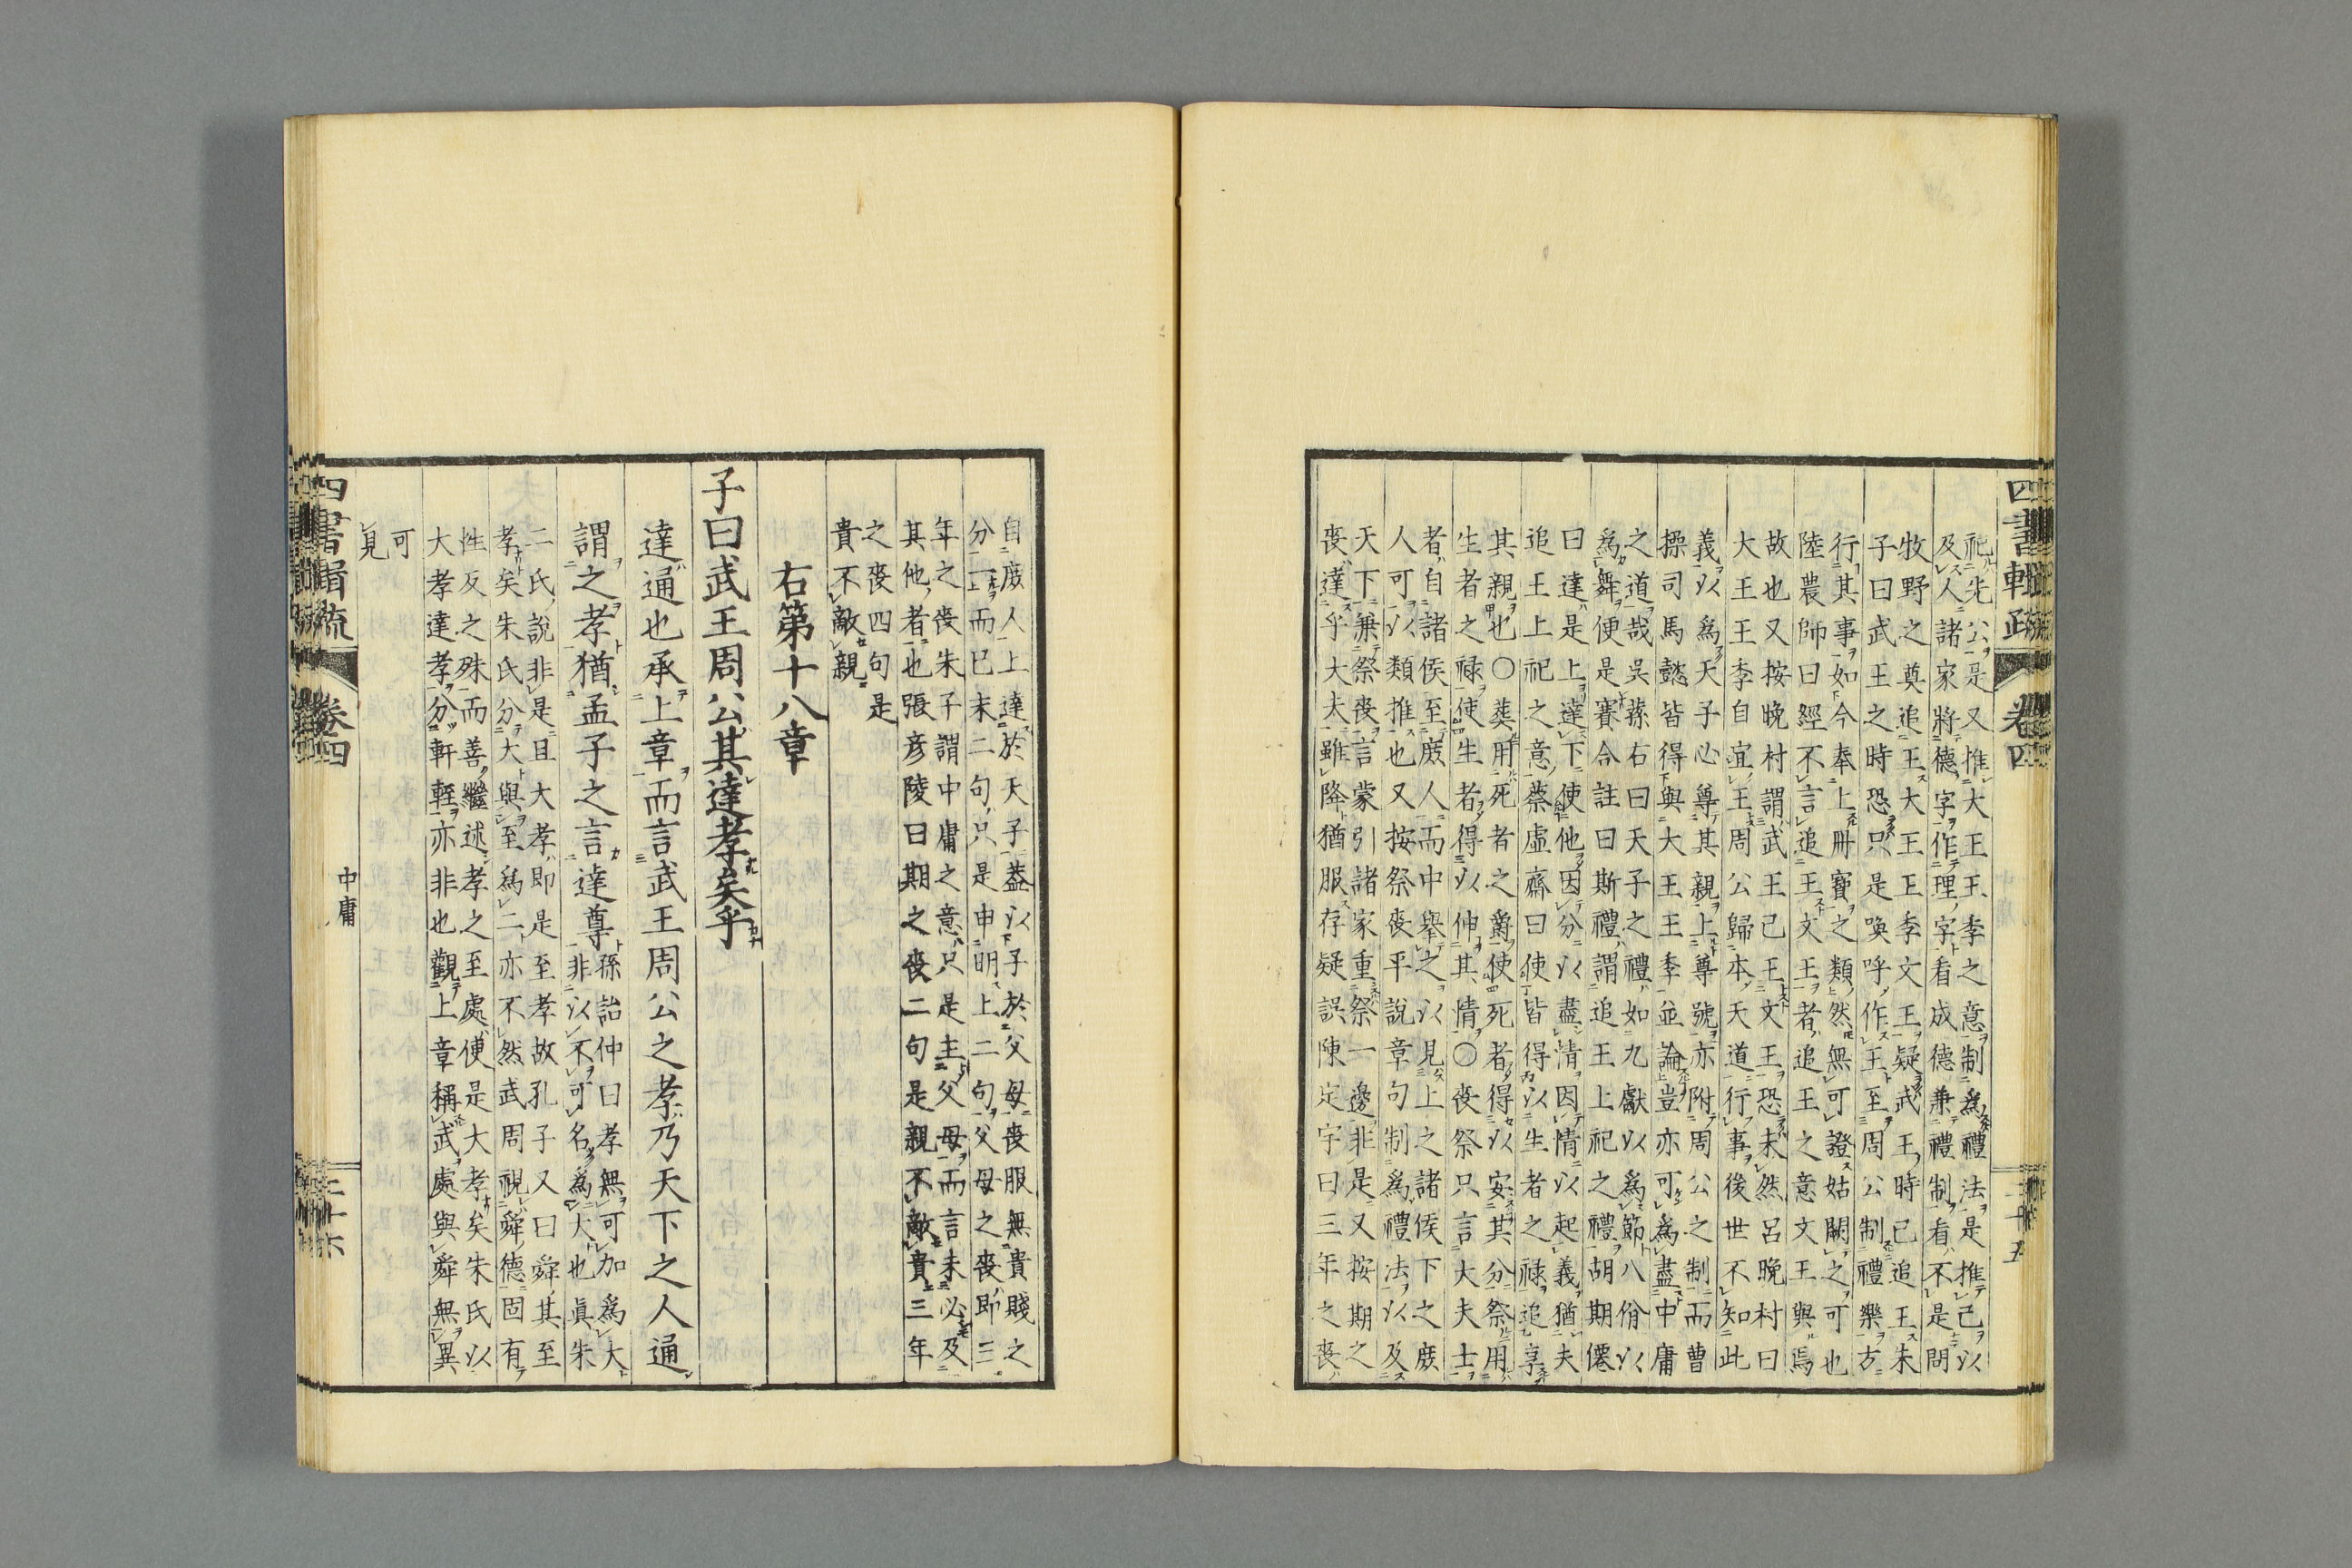 四書輯疏 卷四
祀先公是又推大王王季之意制爲禮法是推己以
及人諸家將德字作理字看成德兼禮制看不是問
牧野之奠追王大王王季文王疑武王時已追王朱
子曰武王之時恐只是喚呼作王至周公制禮樂方
行其事如今奉上册寶之類然無可證姑闕之可也
陸農師曰經不言追王文王者追王之意文王與焉
故也又按晚村謂武王已王文王恐未然呂晚村曰
大王王季自宜王周公歸本天道行事後世不知此
義以爲天子必尊其親上尊號亦附周公之制而曹
操司馬懿皆得與大王王季並論豈亦可爲盡中庸
之道哉吳蓀右曰天子之禮如九獻以爲節八佾以
爲舞便是賽合註曰斯禮謂追王上祀之禮胡期僊
曰達是上達下使他因分以盡情因情以起義猶夫
追王上祀之意蔡虛齋曰使皆得以生者之祿追享
其親也〇葬用死者之爵使死者得以安其分祭用
生者之祿使生者得以伸其情〇喪祭只言大夫士
者自諸侯至庶人而中舉之以見上之諸侯下之庶
人可以類推也又按祭喪平說章句制爲禮法以及
天下兼祭喪言蒙引諸家重祭一邊非是又按期之
喪達乎大夫雖降猶服存疑誤陳定宇曰三年之喪
自庶人上達於天子葢以子於父母喪服無貴賤之
分二而已末二句只是申明上二句父母之喪即三
年之喪朱子謂中庸之意只是主父母而言未必及
其他者也張彥陵曰期之喪二句是親不敵貴三年
之喪四句是
貴不敵親
右第十八章
子曰武王周公其達孝矣乎
達通也承上章而言武王周公之孝乃天下之人通
謂之孝猶孟子之言達尊
孫詒仲曰孝無可加爲大
非以不可名爲大也眞朱
二氏說非是且大孝即是至孝故孔子又曰舜其至
孝矣朱氏分大與至爲二亦不然武周視舜德固有
性反之殊而善繼述孝之至處便是大孝矣朱氏以
大孝達孝分軒輊亦非也觀上章稱武處與舜無異
可
見
四書輯疏 卷四 中庸 三十六